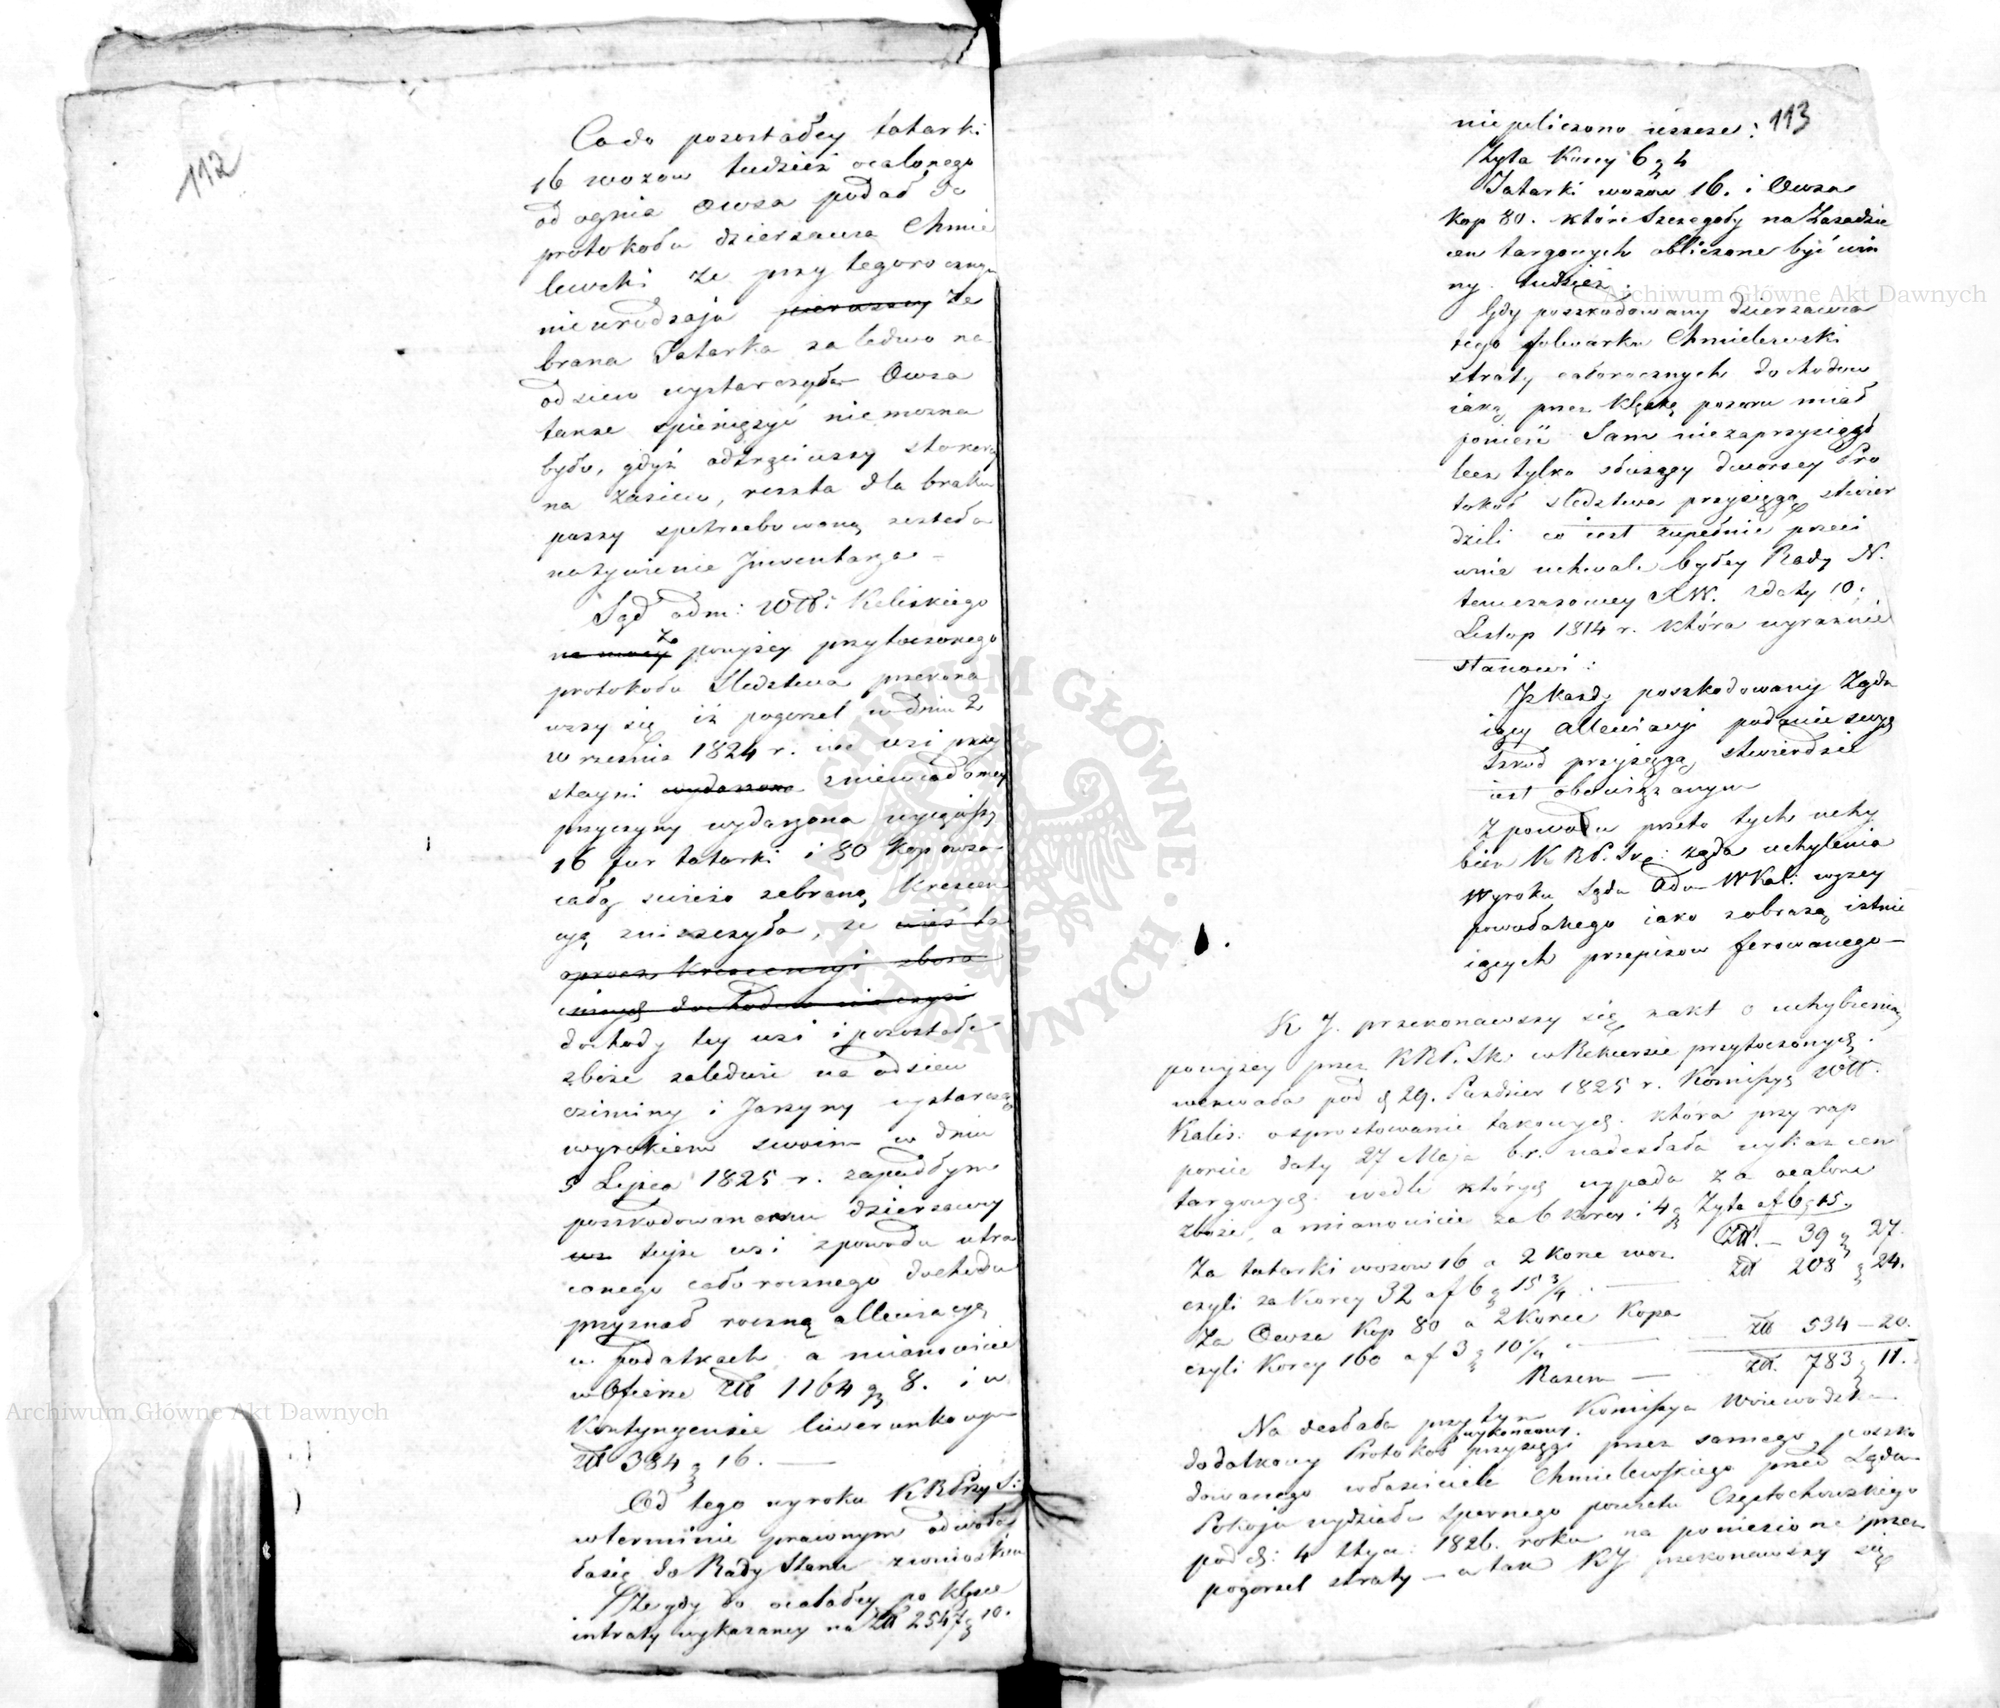 112
Co do pozostałey tatarki
16 wozów tudzież ocalonego
od ognia owsa podał do
protokołu dzierzawca Chmie
lewski że przy tegorocznym
nieurodzaju pierwszey ze
brana Tatarka zaledwo na
odsiew wystarczyła Owsa
także spieniężyć niemożna
było, gdyż odtrąciwszy
na zasiew, reszta dla braku
paszy spotrzebowaną została
na żywienie Inwentarza –
Sąd adm: Wtt: Kaliskiego
na mocy ze powyżey przytoczonego
protokołu śledztwa przekona
wszy się iż pogorzel w dniu 2
września 1824 r. we wsi przy
stayni wydarzona z niewiadomey
przyczyny wydarzona wyiąwszy
16 fur tatarki i 80 kop owsa
całą świeżo zebraną krescen
cyą zniszczyła, że wieś ta
oprócz krescencyi zboża
innych dochodów nie czyni
dochody tey wsi i pozostałe
zboże zaledwie na odsiew
oziminy i Jarzyny wystarczą
wyrokiem swoim w dniu
5 Lipca 1825 r. zapadłym
poszkodowanemu dzierzawcy
tejże wsi z powodu utra
conego całorocznego dochodu
przyznał roczną allewiacyą
w podatkach a mianowicie
w Ofierze Złł 1164 gr 8. i w
Kontyngensie liwerunkowym
złł 384 gr 16. —
Od tego wyroku KRPrzy S:
w terminie prawnym odwołał
ła się do Rady Stanu z wnioskiem
Że gdy do ocalałey po klęsce
intraty wykazaney na Złł 2547 gr 10.
113
niepoliczono ieszcze:
Żyta Korcy 6 g 4
Tatarki wozów 16. i Owsa
Kop 80. które szczegóły na Zasadzie
cen targowych obliczone być win
ny. tudzież:
Gdy poszkodowany dzierzawca
tego folwarku Chmielewski
straty całorocznych dochodów
iaką przez klęskę pożaru miał
ponieść Sam niezaprzysiągł
lecz tylko służący dworscy Pro
tokół śledztwa przysięgą stwier
dzili co iest zupełnie przeci
wnie uchwale byłey Rady N.
temczasowey X.W. z daty 10.
Listop 1814 r. która wyraźnie
stanowi:
Iż każdy poszkodowany Żąda
iący allewiacyi podanie swych
szkód przysięgą stwierdzić
iest obowiązanym
Z powodu przeto tych uchy
bień K RP. Sk: żąda uchylenia
Wyroku Sądu Adm WKal: wyżey
powołanego iako z obrazą istnie
iących przepisów ferowanego –
K J. przekonawszy się z akt o uchybieniu
powyżey przez KRP. Sk. w Rekursie przytoczonych.
wezwała pod d 29. Pazdzier 1825 r. Kommissyą Wtt.
Kalis: o sprostowanie takowych. która przy rap
porcie daty 27 Maja b r. nadesłała wykaz cen
targowych. wedle których wypada za ocalone
zboże, a mianowicie za 6 korcy i 4 g Żyta a f 6 g 15.
Złł. – 39 g 27.
Za tatarki wozów 16 a 2 korce woz
czyli za Korcy 32 a f 6 g 15 3/4 . — złł 208 g 24.
Za Owsa Kop 80 a 2 Korce Kopa
czyli Korcy 160 a f 3 g 10 1/4 — złł 534 – 20.
Razem — złł. 783 g 11.
Na desłała przytym Kommissya Woiewódzka
dodatkowy Protokół wykonaney przysięgi przez samego poszko
dowanego właściciela Chmielewskiego przed Sądem
Pokoju wydziału spornego powiatu Częstochowskiego
pod d: 4 1826. roku na poniesione przez
pogorzel straty – a tak KJ przekonawszy się